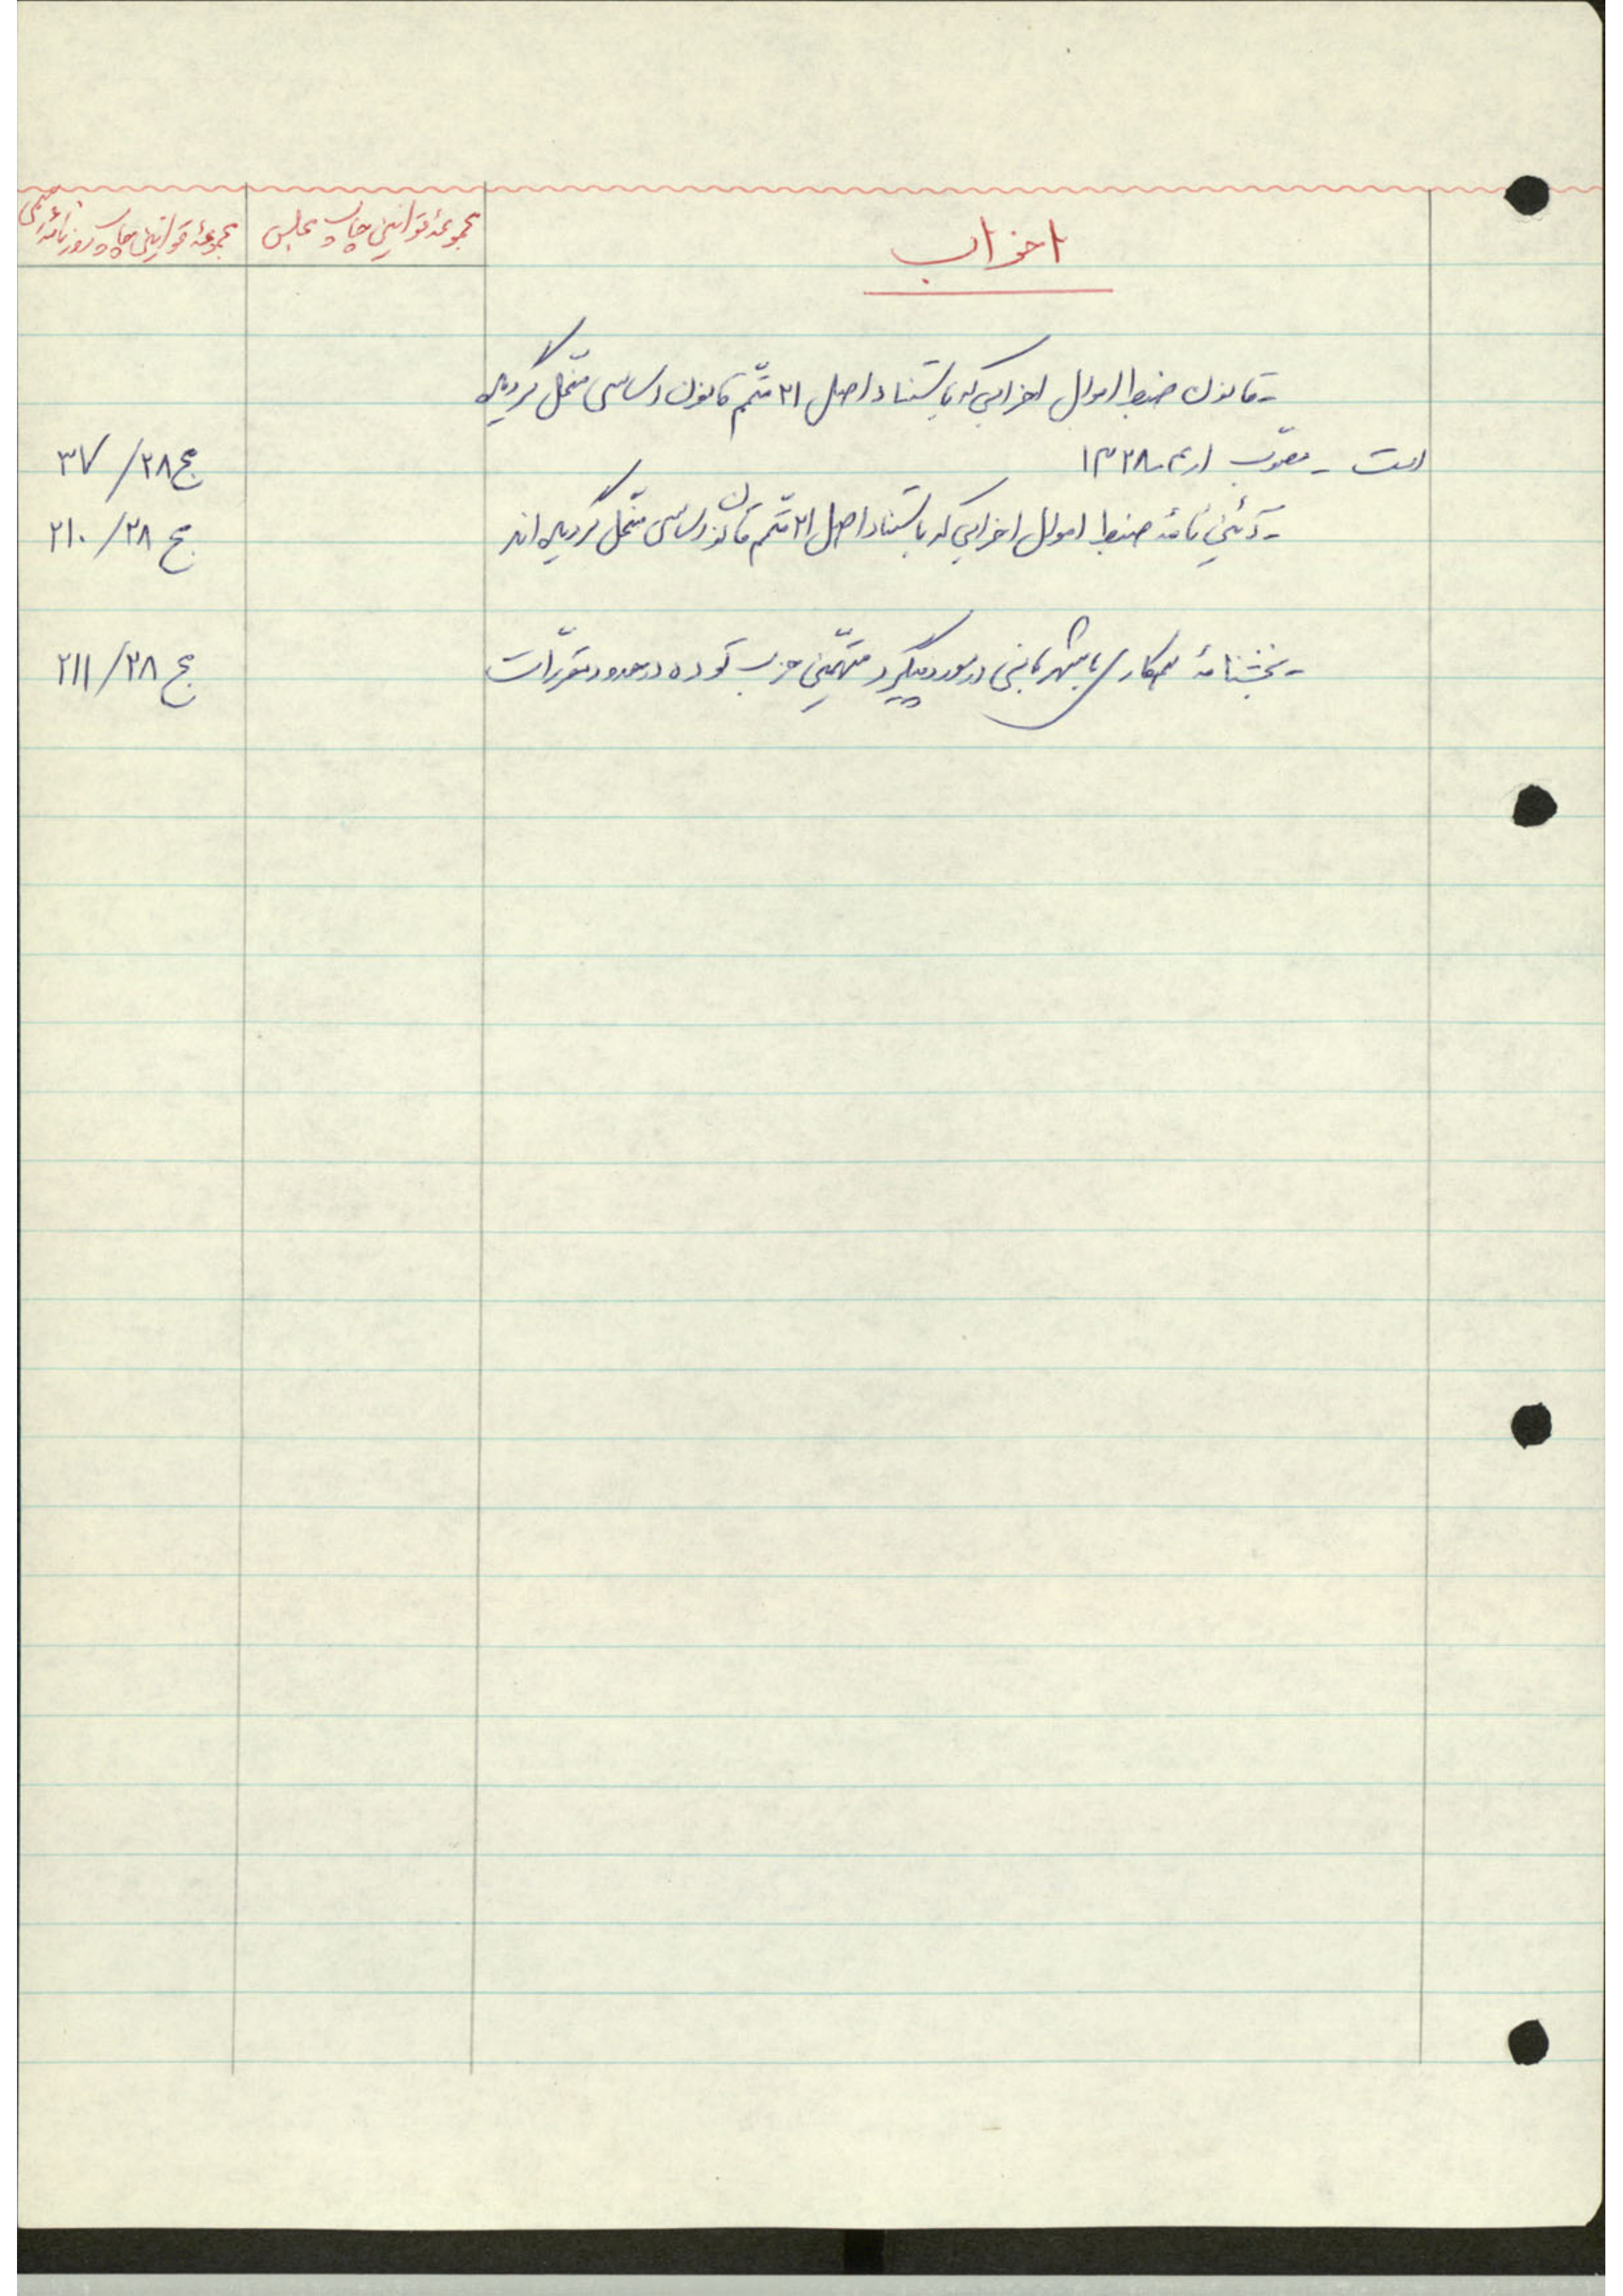 احزاب
مجموعهٔ قوانین چاپ مجلس
مجموعهٔ قوانین چاپ روزنامهٔ رسمی
- قانون ضبط اموال احزابیکه باستناد اصل ۲۱ متمّم قانون اساسی منحل گردیده
است - مصوّب ۱۳۲۸
مج ۲۸/ ۳۷
- آئین نامهٔ ضبط اموال احزابی که باستناد اصل ۲۱ متمّم قانون اساسی منحل گردیده اند
مج ۲۸/ ۲۱۰
- بخشنامهٔ همکاری با شهربانی در مورد پیگرد متهمّین حزب توده در حدود مقرّرات
مج ۲۸/ ۲۱۱